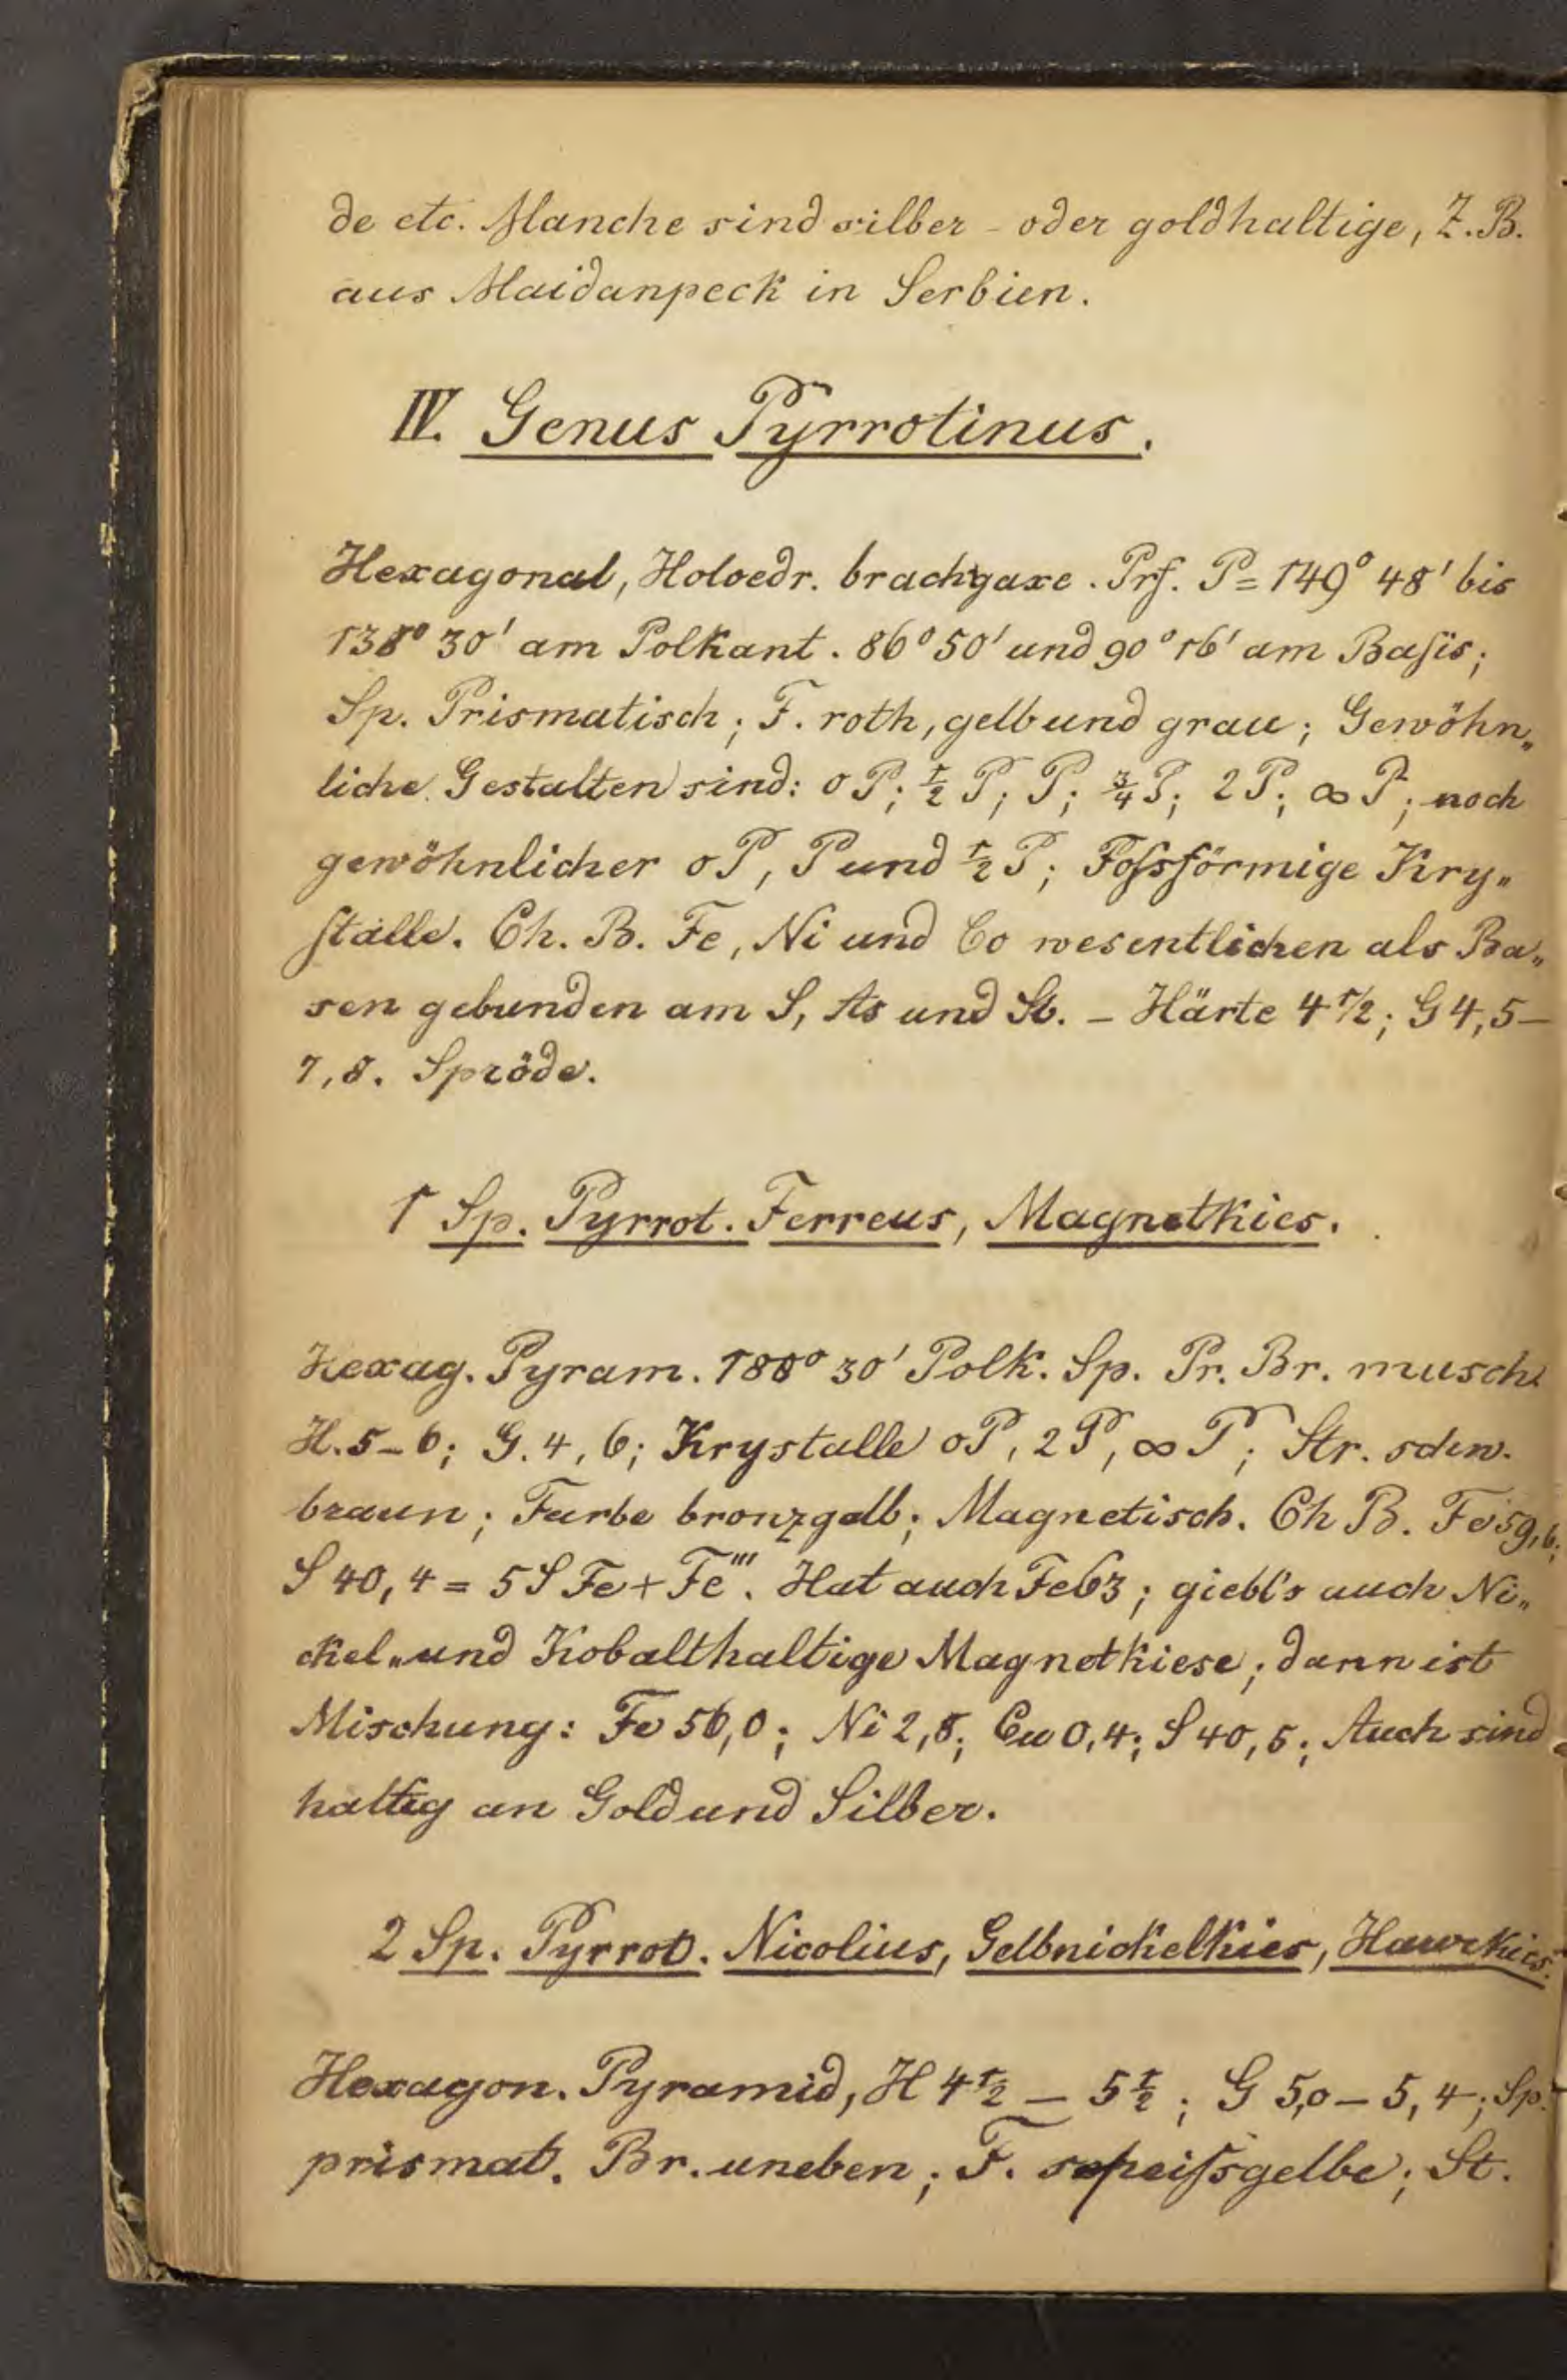 de etc. Manche sind silber - oder goldhaltige, Z.B.
aus Maidanpeck in Serbien.
IV. Genus Pyrrotinus.
Hexagonal, Holoedr. brachyaxe. Prf. P = 149° 48' bis
138° 30' am Polkant. 86° 50' und 90° 16' am Basis;
Sp. Prismatisch; F. roth, gelb und grau; Gewöhn„
liche Gestalten sind: oP; ½ P; P; ¾ P; 2P; ∞ P; noch
gewöhnlicher oP, P und ½ P; Fossförmige Kry„
stalle. Ch. B. Fe, Ni und Co wesentlichen als Ba„
sen gebunden am S, As und Sb. – Härte 4 1/2; G 4,5–
7,8. Spröde.
1 Sp. Pyrrot. Ferreus, Magnetkies.
Hexag. Pyram. 30' Polk. Sp. Pr. Br. musch
H. 5–6; G. 4,6; Krystalle oP, 2P, ∞ P; Str. schw.
braun; Farbe bronzgelb; Magnetisch. Ch B. Fe 59,6;
S 40,4 = 5 S Fe + Fe''' . Hat auch Fe 63; giebt's auch Ni„
ckel„und Kobalthaltige Magnetkiese; dann ist
Mischung: Fe 56,0; Ni 2,8; Cu 0,4; S 40,5; Auch sind
haltig an Gold und Silber.
2 Sp. Pyrrot. Nicolius, Gelbnickelkies, Haarkies.
Hexagon. Pyramid, H 4½ – 5½; G 5,0 – 5,4; Sp.
prismat. Br. uneben; F. speissgelbe; St.